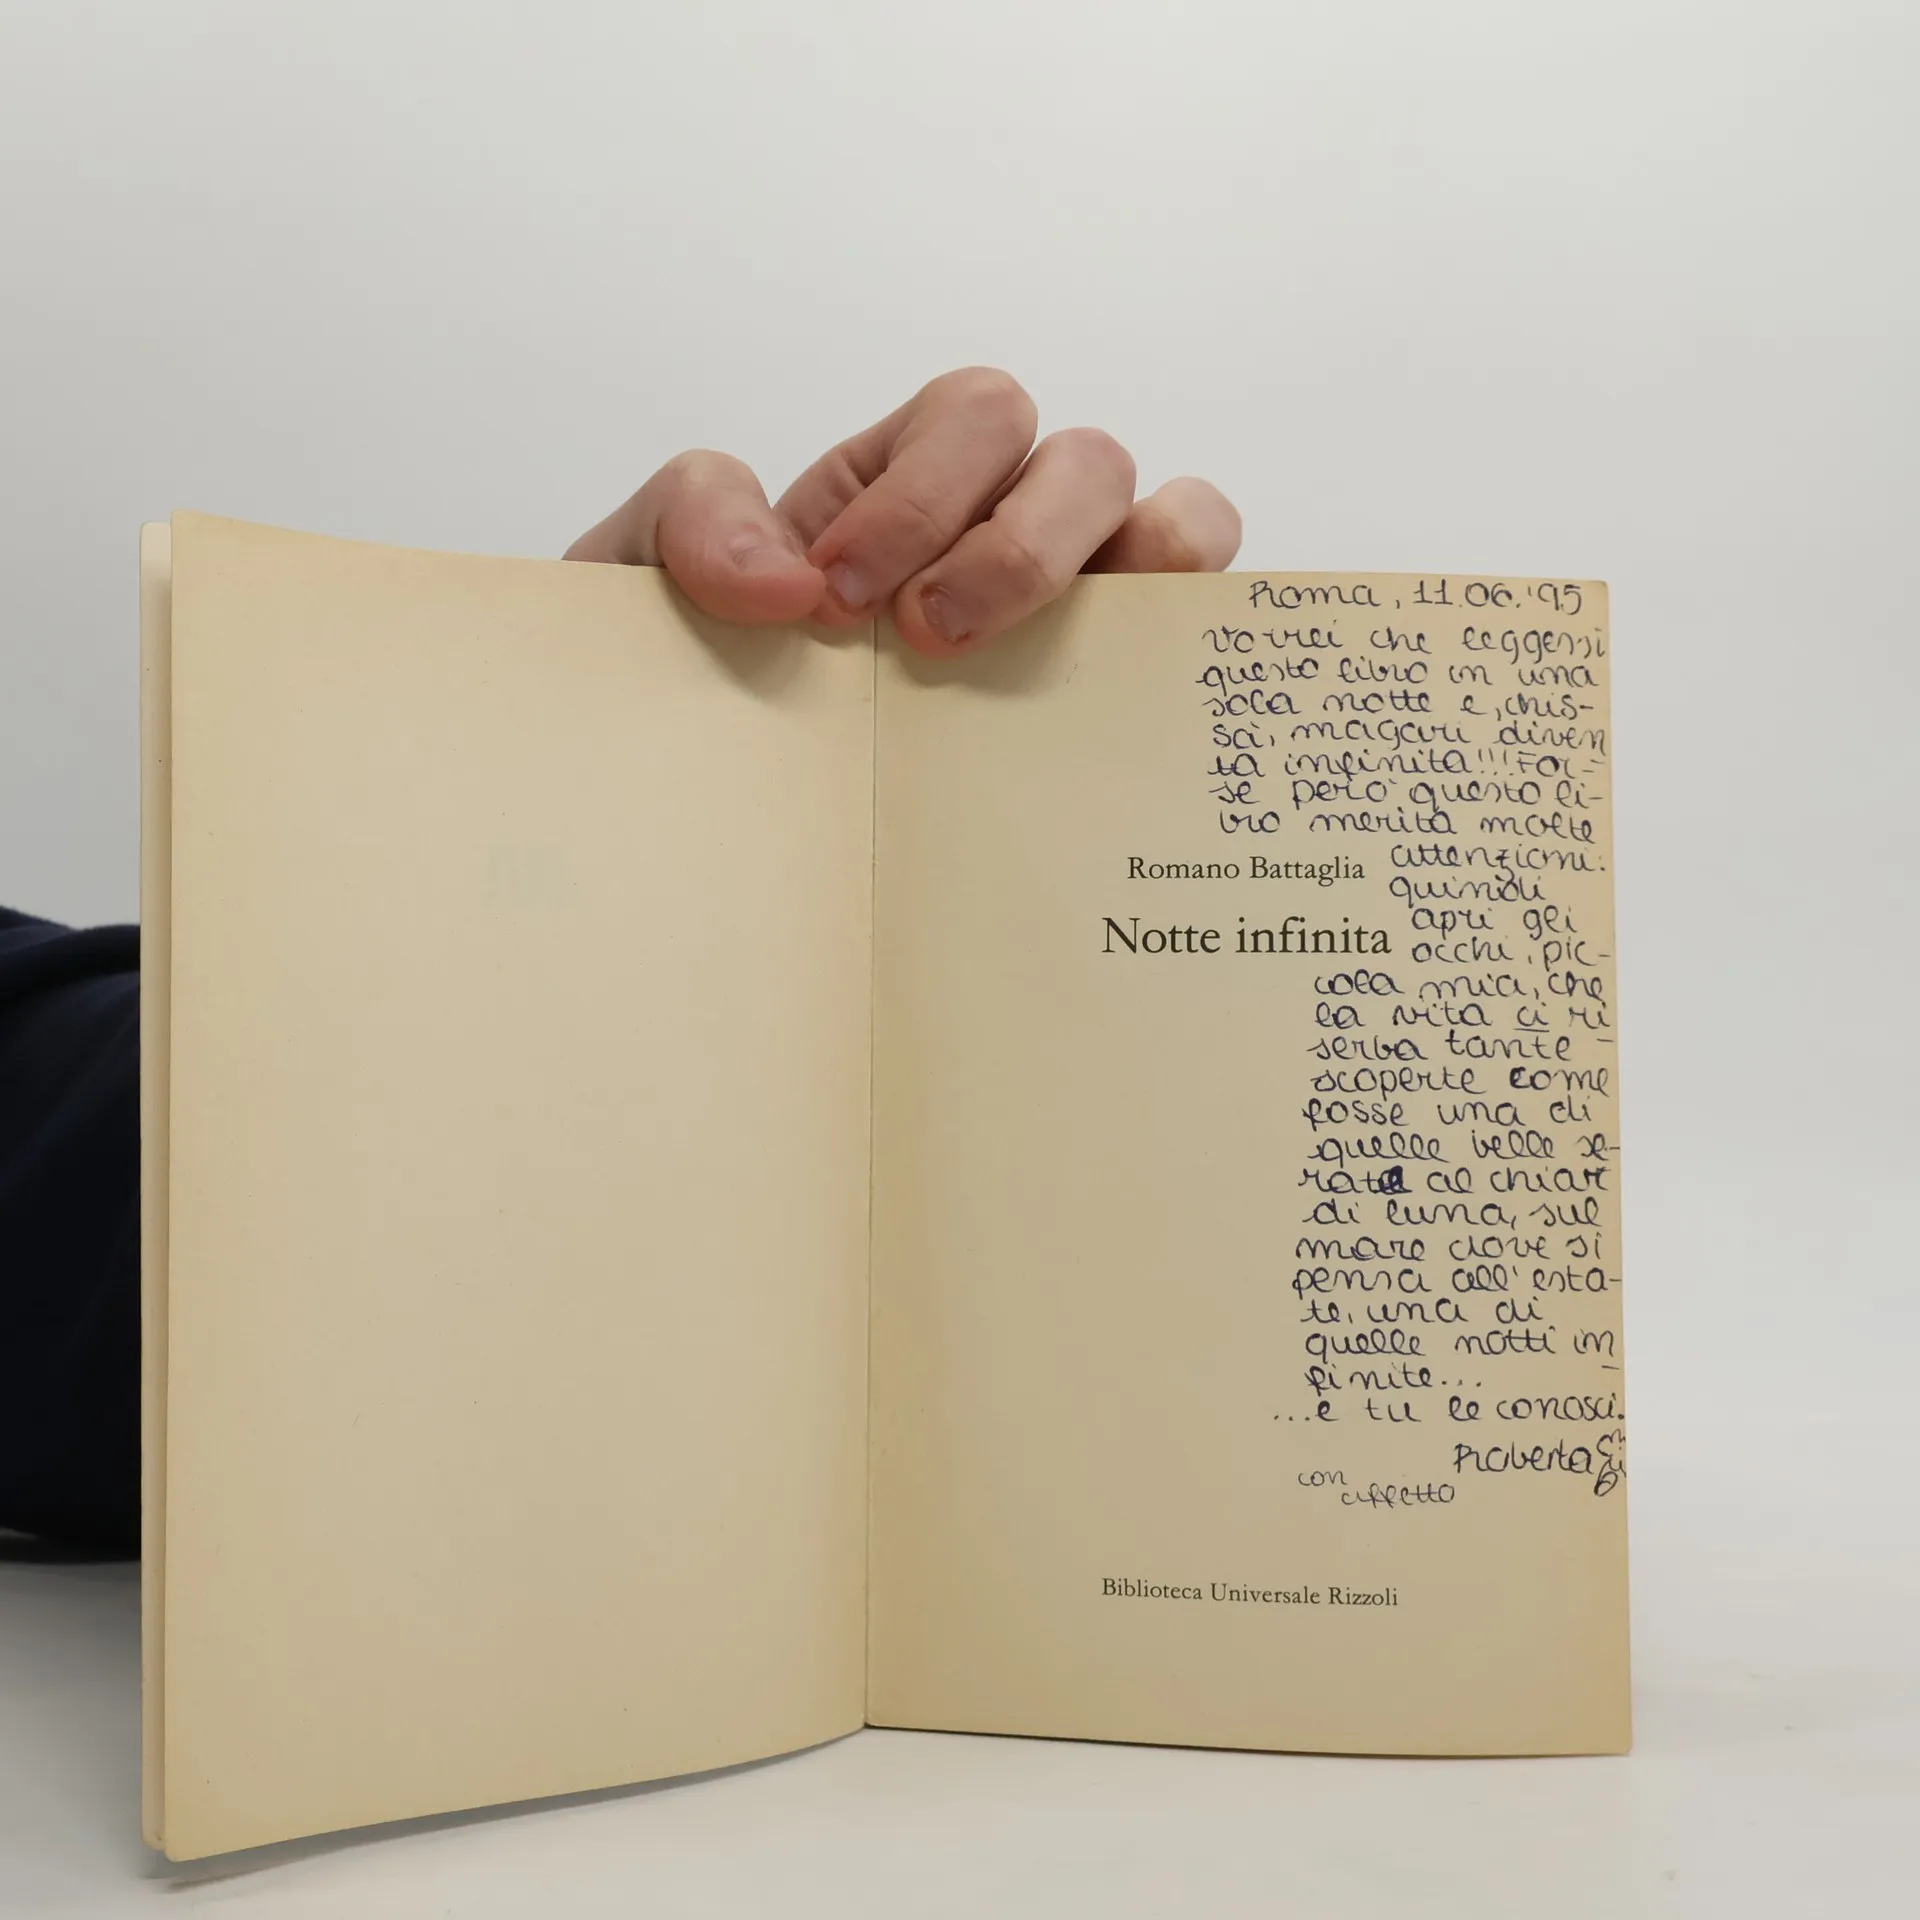 Roma, 11.06.'95
vorrei che leggessi
questo libro in una
sola notte e, chis-
sà, magari diven
ta infinita!!! For-
se però questo li-
bro merita molte
attenzioni:
Romano Battaglia
quindi
apri gli
Notte infinita
occhi, pic-
cola mia, che
la vita ci ri
serba tante -
scoperte come
fosse una di
quelle belle se-
rate al chiar
di luna, sul
mare dove si
pensa all'esta-
te, una di
quelle notti in
finite...
...e tu le conosci.
Roberta
con
affetto
Biblioteca Universale Rizzoli